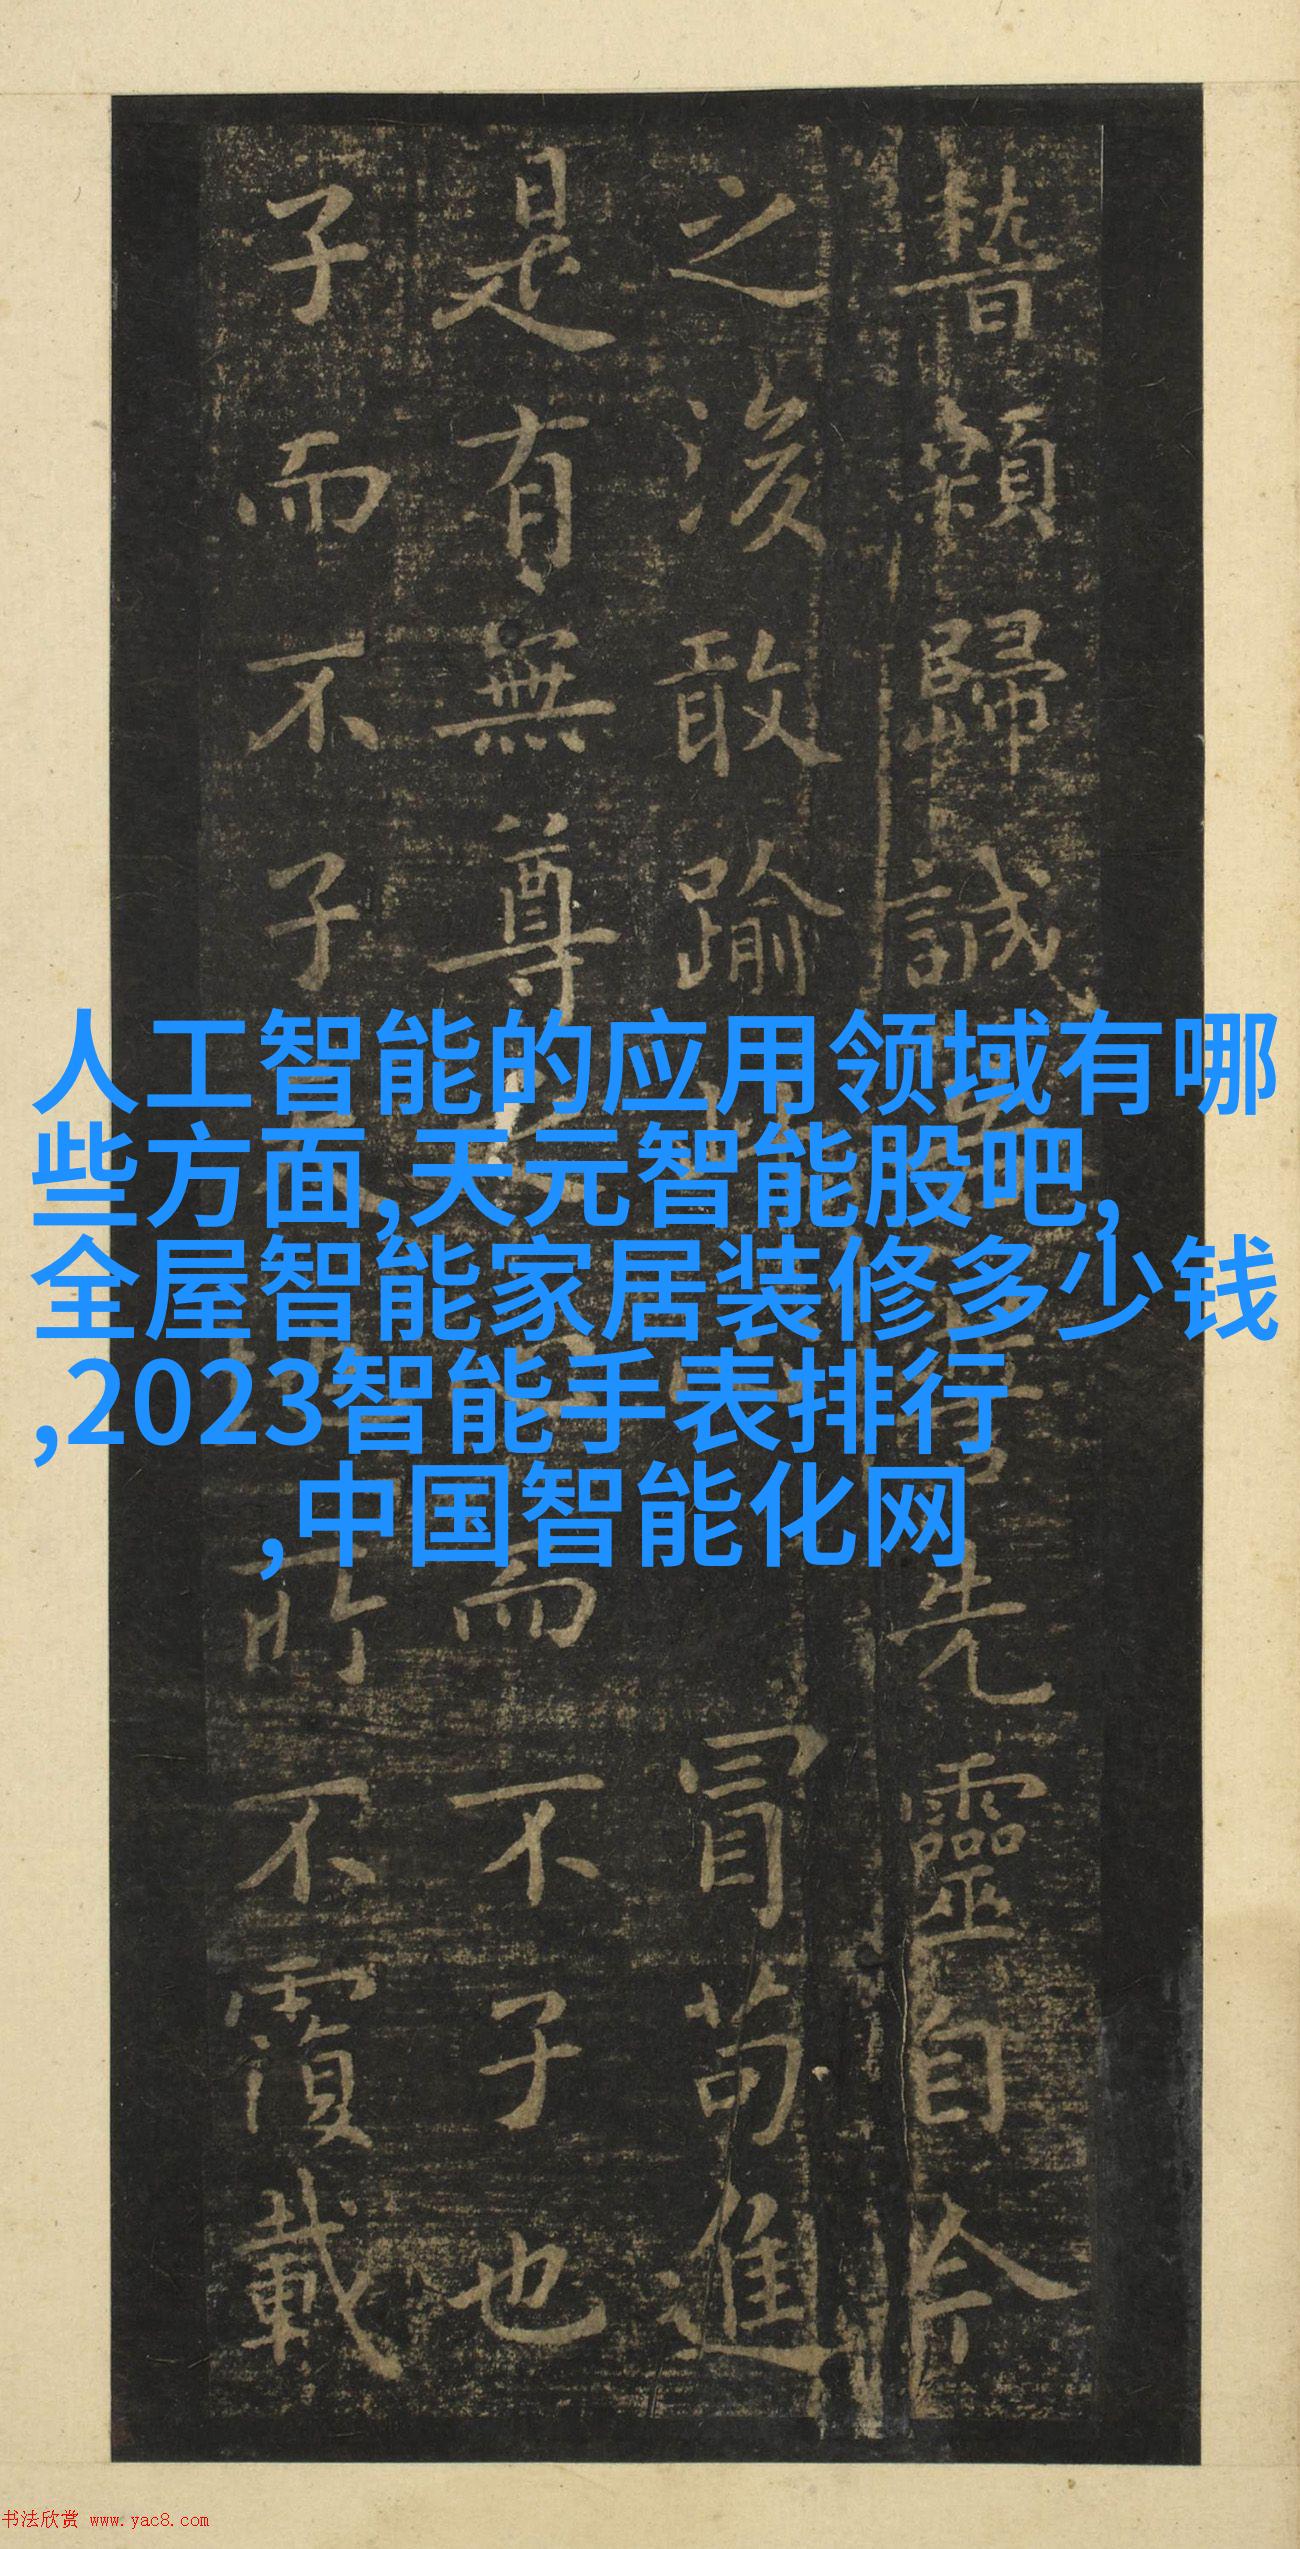 稽顙歸誠先靈自今
之後敢踰冒苟進
是有無尊而不子也
子而不子所不覆載
人工智能的应用领域有哪
些方面,天元智能股吧,
全屋智能家居装修多少钱
,2023智能手表排行
,中国智能化网
书法欣赏 www.yac8.com